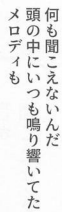 何も聞こえないんだ
頭の中にいつも鳴り響いてた
メロディも